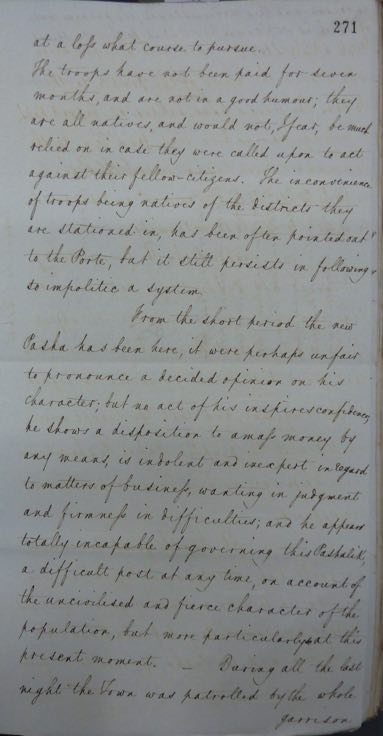 271
at a loss what course to pursue.
The troops have not been paid for seven
months, and are not in a good humour; they
are all natives, and would not, I fear, be much
relied on in case they were called upon to act
against their fellow-citizens. The inconvenience
of troops being natives of the districts they
are stationed in, has been often pointed out
to the Porte, but it still persists in following
so impolitic a system.
From the short period the new
Pasha has been here, it were perhaps unfair
to pronounce a decided opinion on his
character; but no act of his inspires confidence,
he shows a disposition to amass money by
any means, is indolent and inexpert in regard
to matters of business, wanting in judgment
and firmness in difficulties; and he appears
totally incapable of governing this Pashalik,
a difficult post at any time, on account of
the uncivilised and fierce character of the
population, but more particularly at this
present moment. _ During all the last
night the Town was patrolled by the whole
garrison